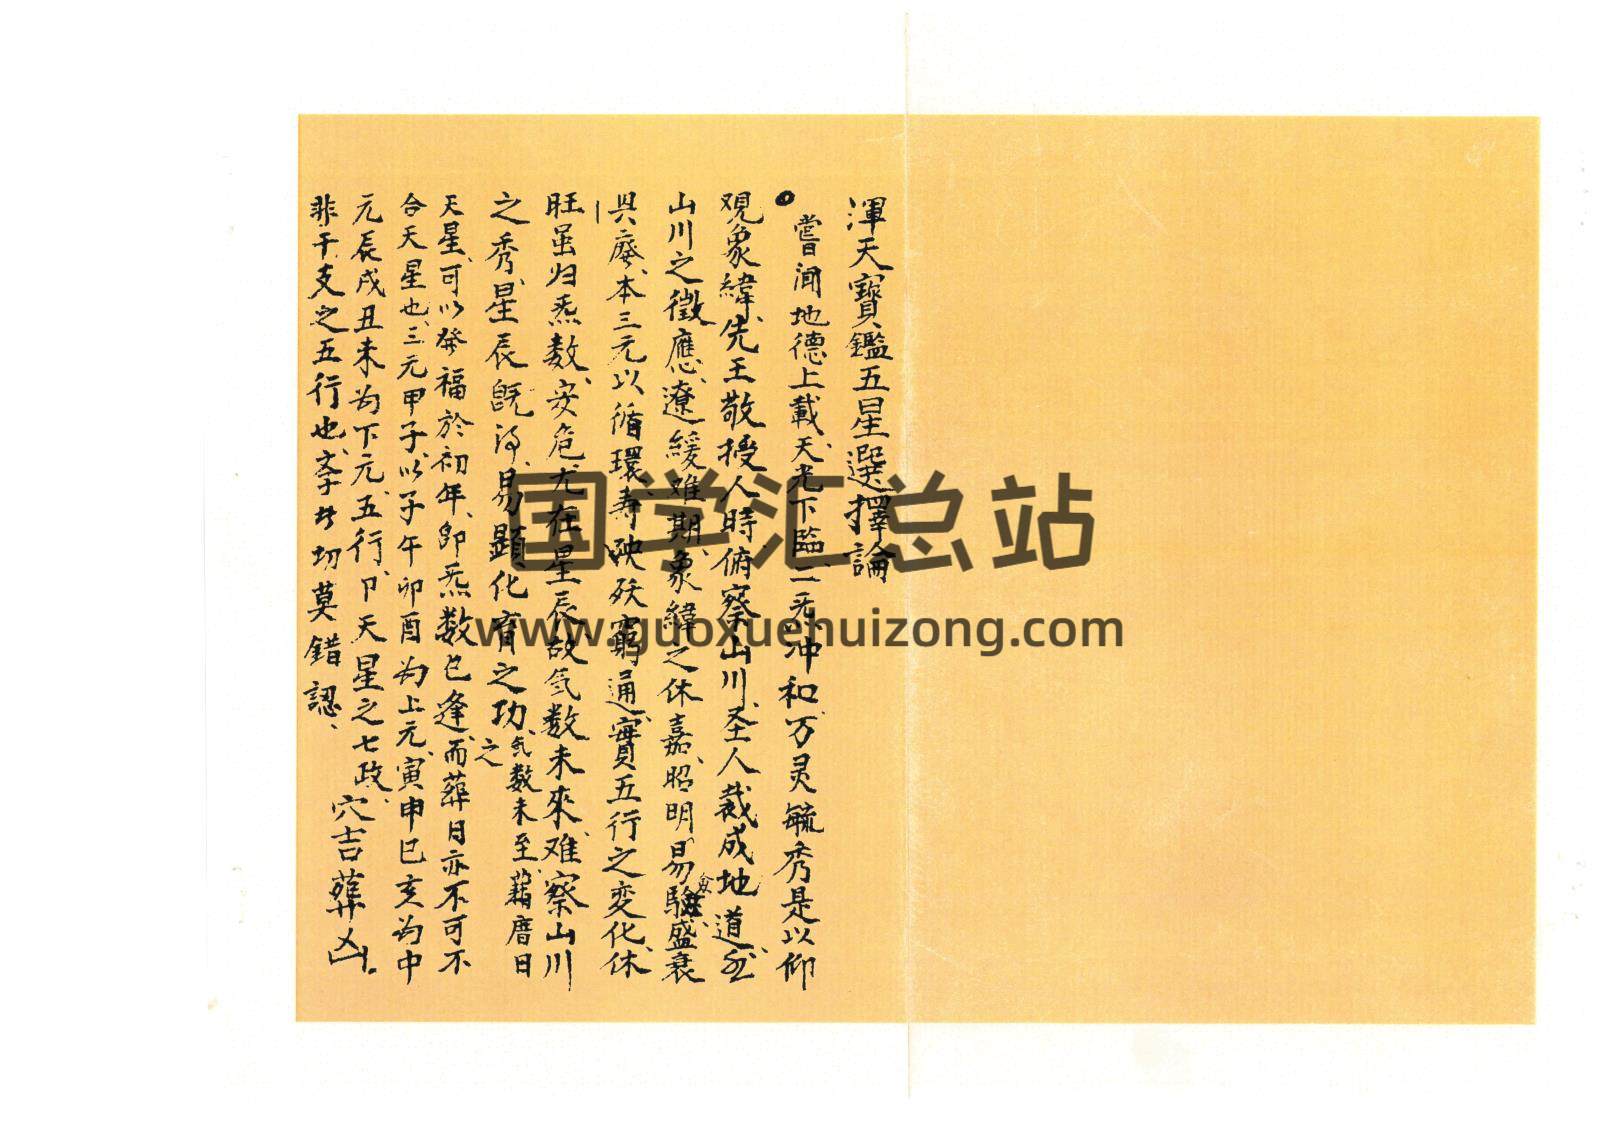 渾天寶鑑五星選擇論
嘗聞地德上載、天光下臨、二炁冲和、万灵毓秀是以仰
观象緯、先王敬授人時俯察山川、圣人裁成地道、
山川之徵應、遼緩难期、象緯之休嘉、昭明易驗、盛衰
具廢、本三元以循環、寿殀窮通、實五行之变化、休
旺虽归炁数、安危尤在星辰、故氣数未來、难察山川
之秀、星辰既得、易顯化育之功、氣数未至、藉曆日之
天星、可以發福於初年、即炁数已逢、而葬日亦不可不
合天星也、三元甲子以子午卯酉为上元、寅申巳亥为中
元辰戌丑未为下元、五行、卩天星之七政、
非干支之五行也、切莫錯認、
穴吉葬凶。
国学汇总站
www.guoxuehuizong.com